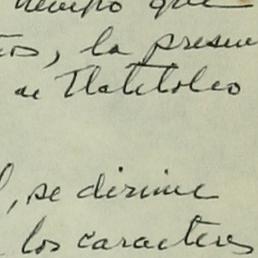 tiempo que
, la presen
de Tlatelolco
, se dirime
los caracteres